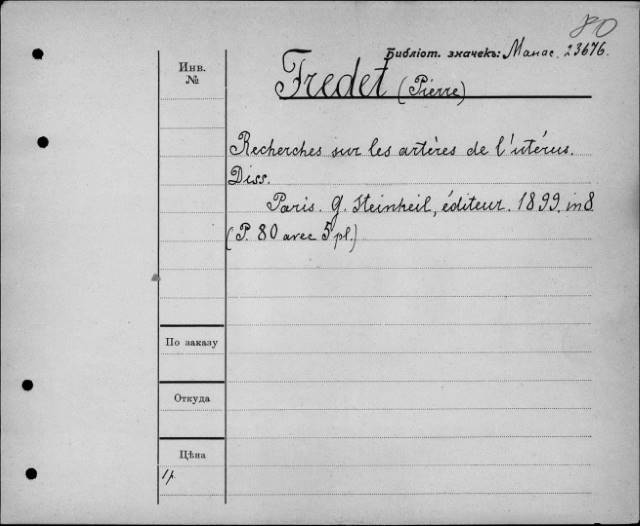 80
Библіот. значекъ: Манас. 23676.
Инв.
№
Fredet (Pierre)
Recherches sur les artères de l'utérus.
Diss.
Paris. G. Steinheil, éditeur. 1899. in 8
(P. 80 avec 5 pl.)
По заказу
Откуда
Цѣна
1р.